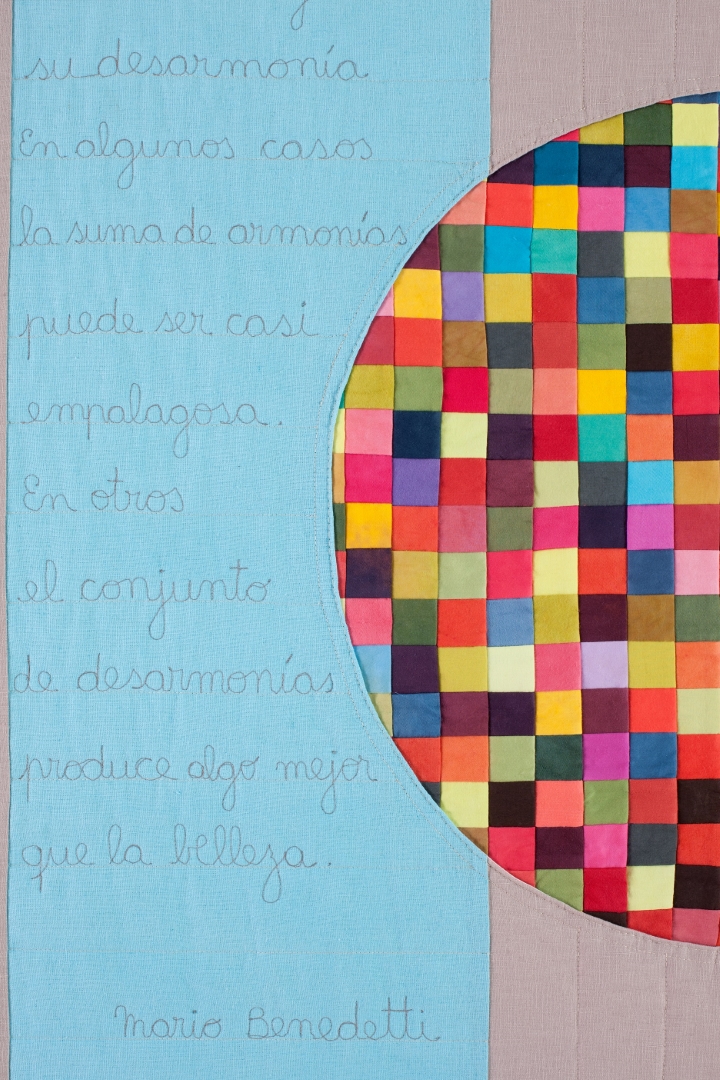 su desarmonía
En algunos casos
la suma de armonías
puede ser casi
empalagosa.
En otros
el conjunto
de desarmonías
produce algo mejor
que la belleza.
Mario Benedetti